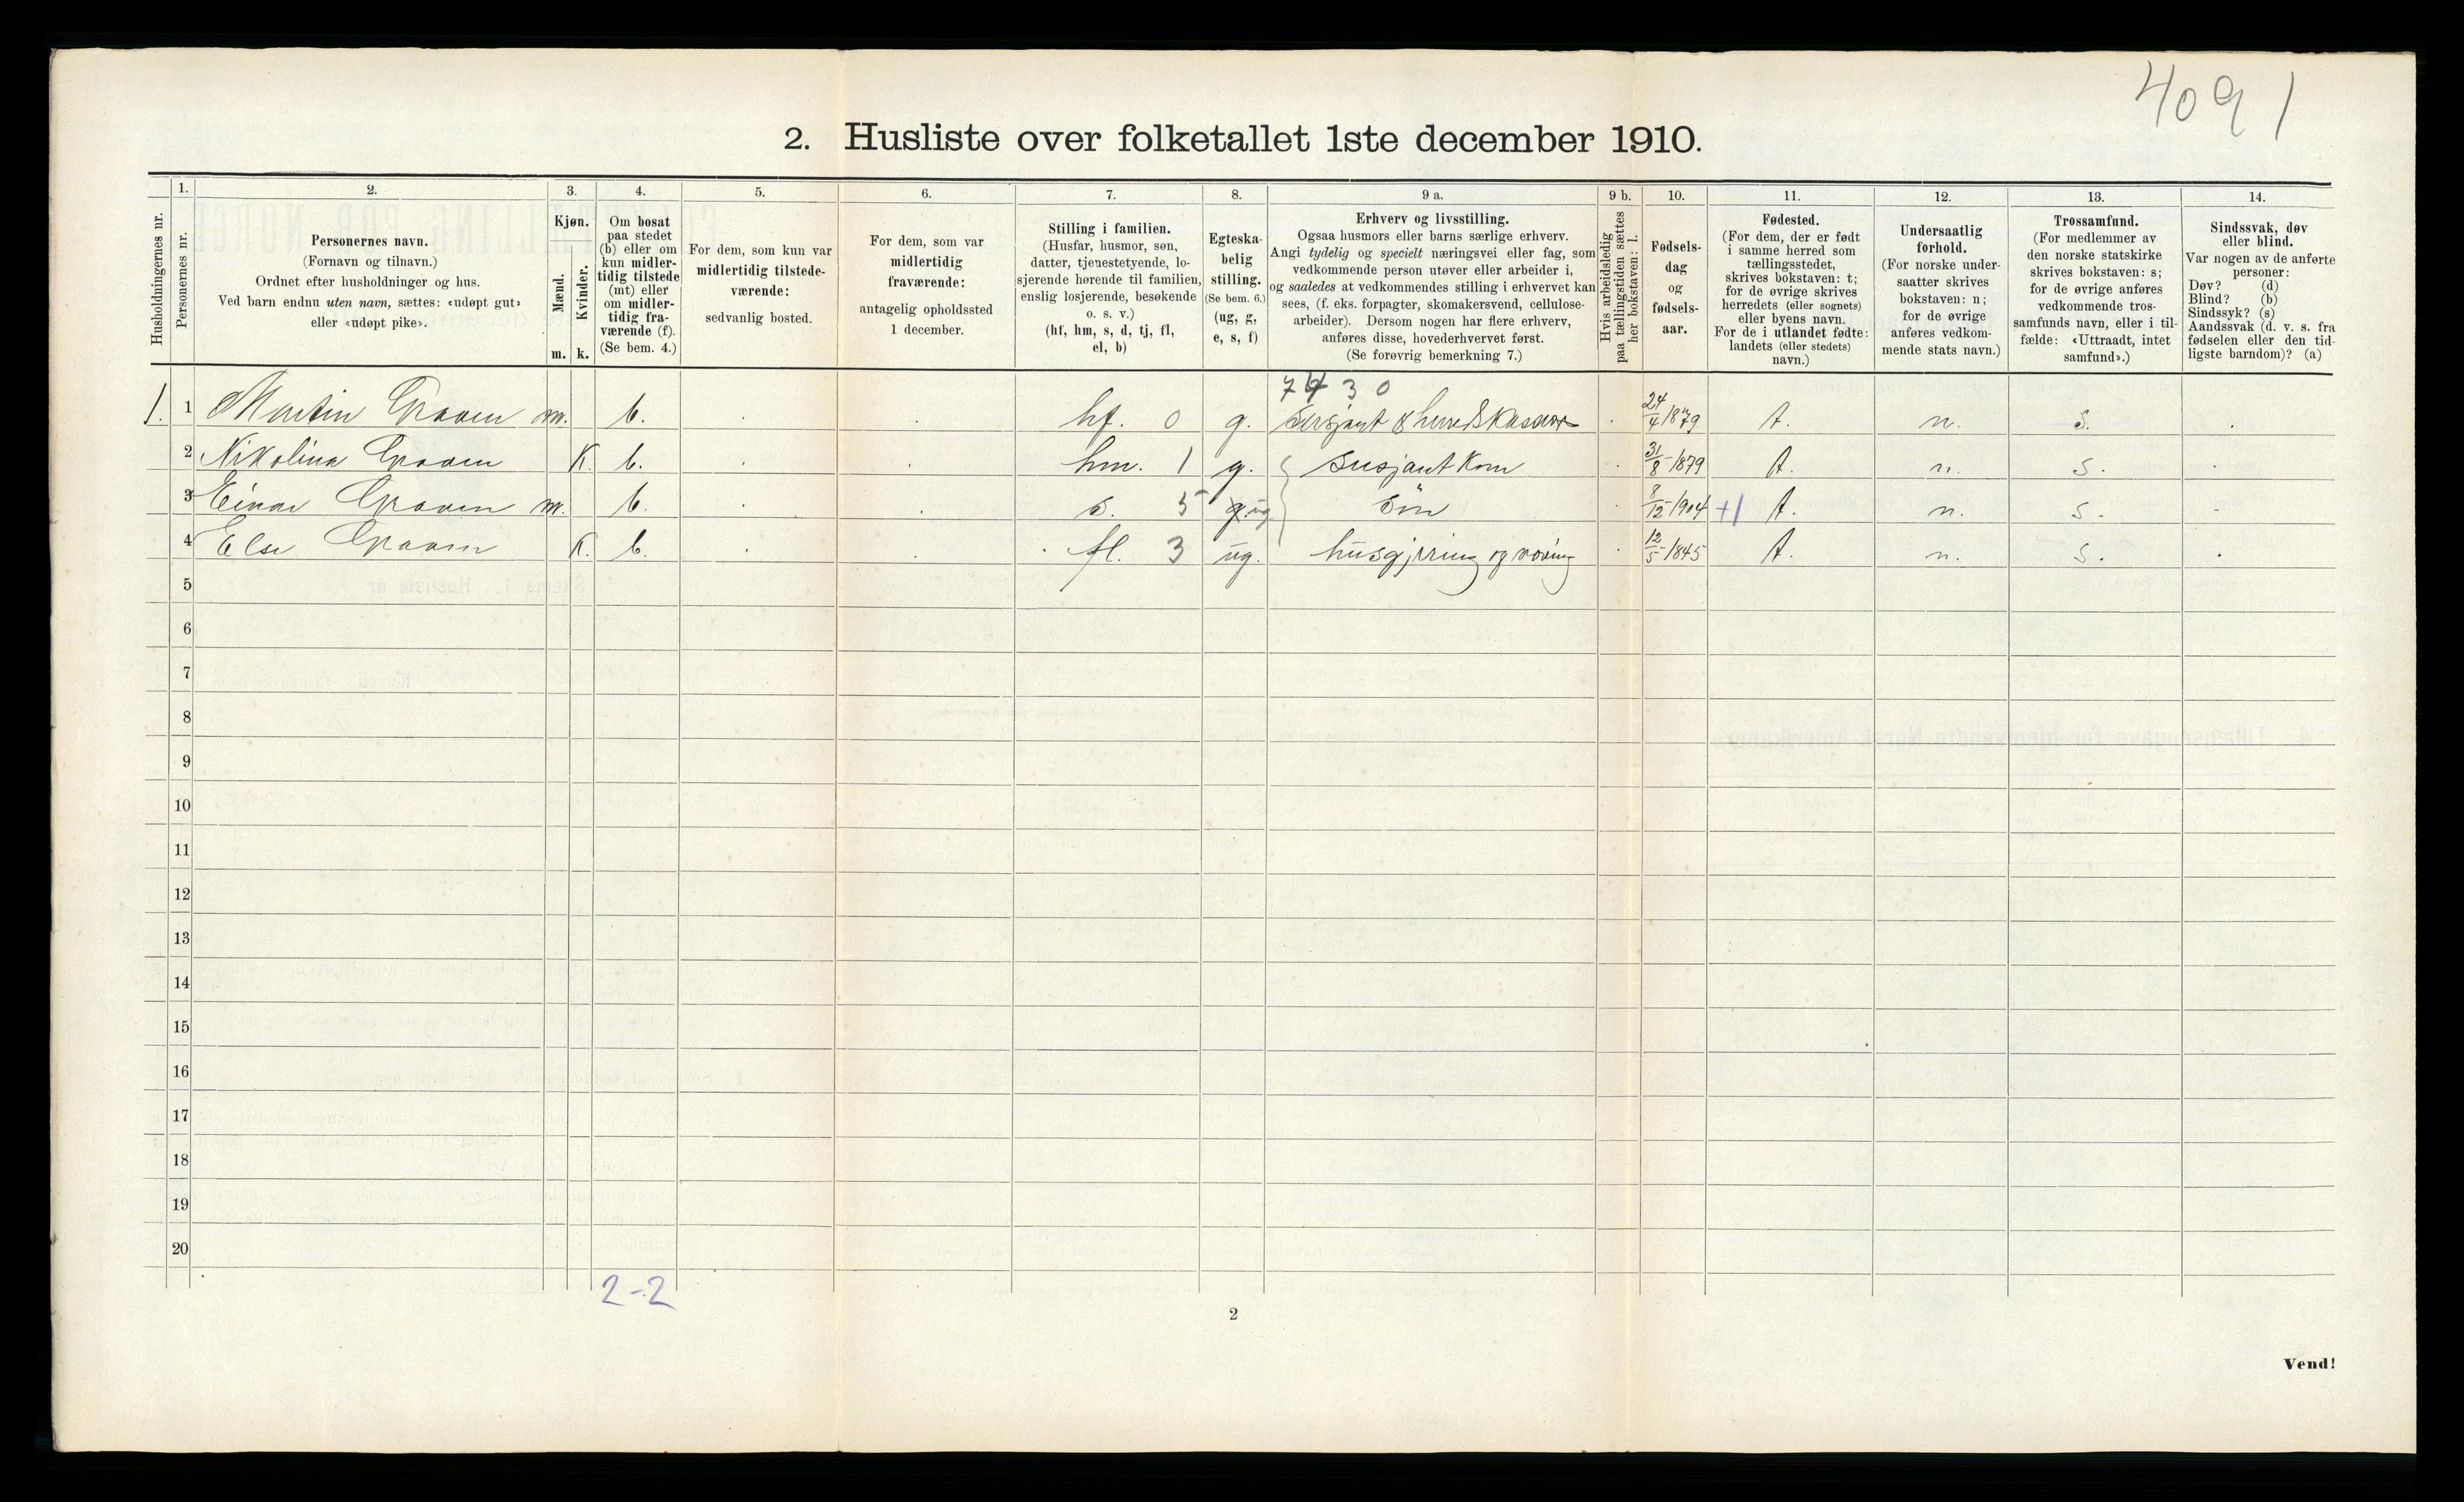 4091
2. Husliste over folketallet 1ste december 1910.
Husholdningernes nr.
1.
Personernes nr.
2.
Personernes navn.
(Fornavn og tilnavn.)
Ordnet efter husholdninger og hus.
Ved barn endnu uten navn, sættes: «udøpt gut»
eller «udøpt pike».
3.
Kjøn.
Mænd.
Kvinder.
m. k.
4.
Om bosat
paa stedet
(b) eller om
kun midler-
tidig tilstede
(mt) eller
om midler-
tidig fra-
værende (f).
(Se bem. 4.)
5.
For dem, som kun var
midlertidig tilstede-
værende:
sedvanlig bosted.
6.
For dem, som var
midlertidig
fraværende:
antagelig opholdssted
1 december.
7.
Stilling i familien.
(Husfar, husmor, søn,
datter, tjenestetyende, lo-
sjerende hørende til familien,
enslig losjerende, besøkende
o. s. v.)
(hf, hm, s, d, tj, fl,
el, b)
8.
Egteska-
belig
stilling.
(Se bem. 6.)
(ug, g,
e, s, f)
9 a.
Erhverv og livsstilling.
Ogsaa husmors eller barns særlige erhverv.
Angi tydelig og specielt næringsvei eller fag, som
vedkommende person utøver eller arbeider i,
og saaledes at vedkommendes stilling i erhvervet kan
sees, (f. eks. forpagter, skomakersvend, cellulose-
arbeider). Dersom nogen har flere erhverv,
anføres disse, hovederhvervet først.
(Se forøvrig bemerkning 7.)
9 b.
Hvis arbeidsledig
paa tællingstiden sættes
her bokstaven: l.
10.
Fødsels-
dag
og
fødsels-
aar.
11.
Fødested.
(For dem, der er født
i samme herred som
tællingsstedet,
skrives bokstaven: t;
for de øvrige skrives
herredets (eller sognets)
eller byens navn.
For de i utlandet fødte:
landets (eller stedets)
navn.)
12.
Undersaatlig
forhold.
(For norske under-
saatter skrives
bokstaven: n;
for de øvrige
anføres vedkom-
mende stats navn.)
13.
Trossamfund.
(For medlemmer av
den norske statskirke
skrives bokstaven: s;
for de øvrige anføres
vedkommende tros-
samfunds navn, eller i til-
fælde: «Uttraadt, intet
samfund».)
14.
Sindssvak, døv
eller blind.
Var nogen av de anførte
personer:
Døv? (d)
Blind? (b)
Sindssyk? (s)
Aandssvak (d. v. s. fra
fødselen eller den tid-
ligste barndom)? (a)
1. 1 Martin Graven m. b. . . hf. 0 g. Sersjant & herredskasserer . 24/4 1879 t. n. s. .
2 Nikolina Graven K. b. . . hm. 1 g. Sersjant Kone . 31/8 1879 t. n. s. .
3 Einar Graven m. b. . . s. 5 ug Sön . 8/12 1904 +1 t. n. s. .
4 Else Graven K. b. . . fl. 3 ug. husgjerning og væving . 12/5 1845 t. n. s. .
5
6
7
8
9
10
11
12
13
14
15
16
17
18
19
20
2-2
2
Vend!